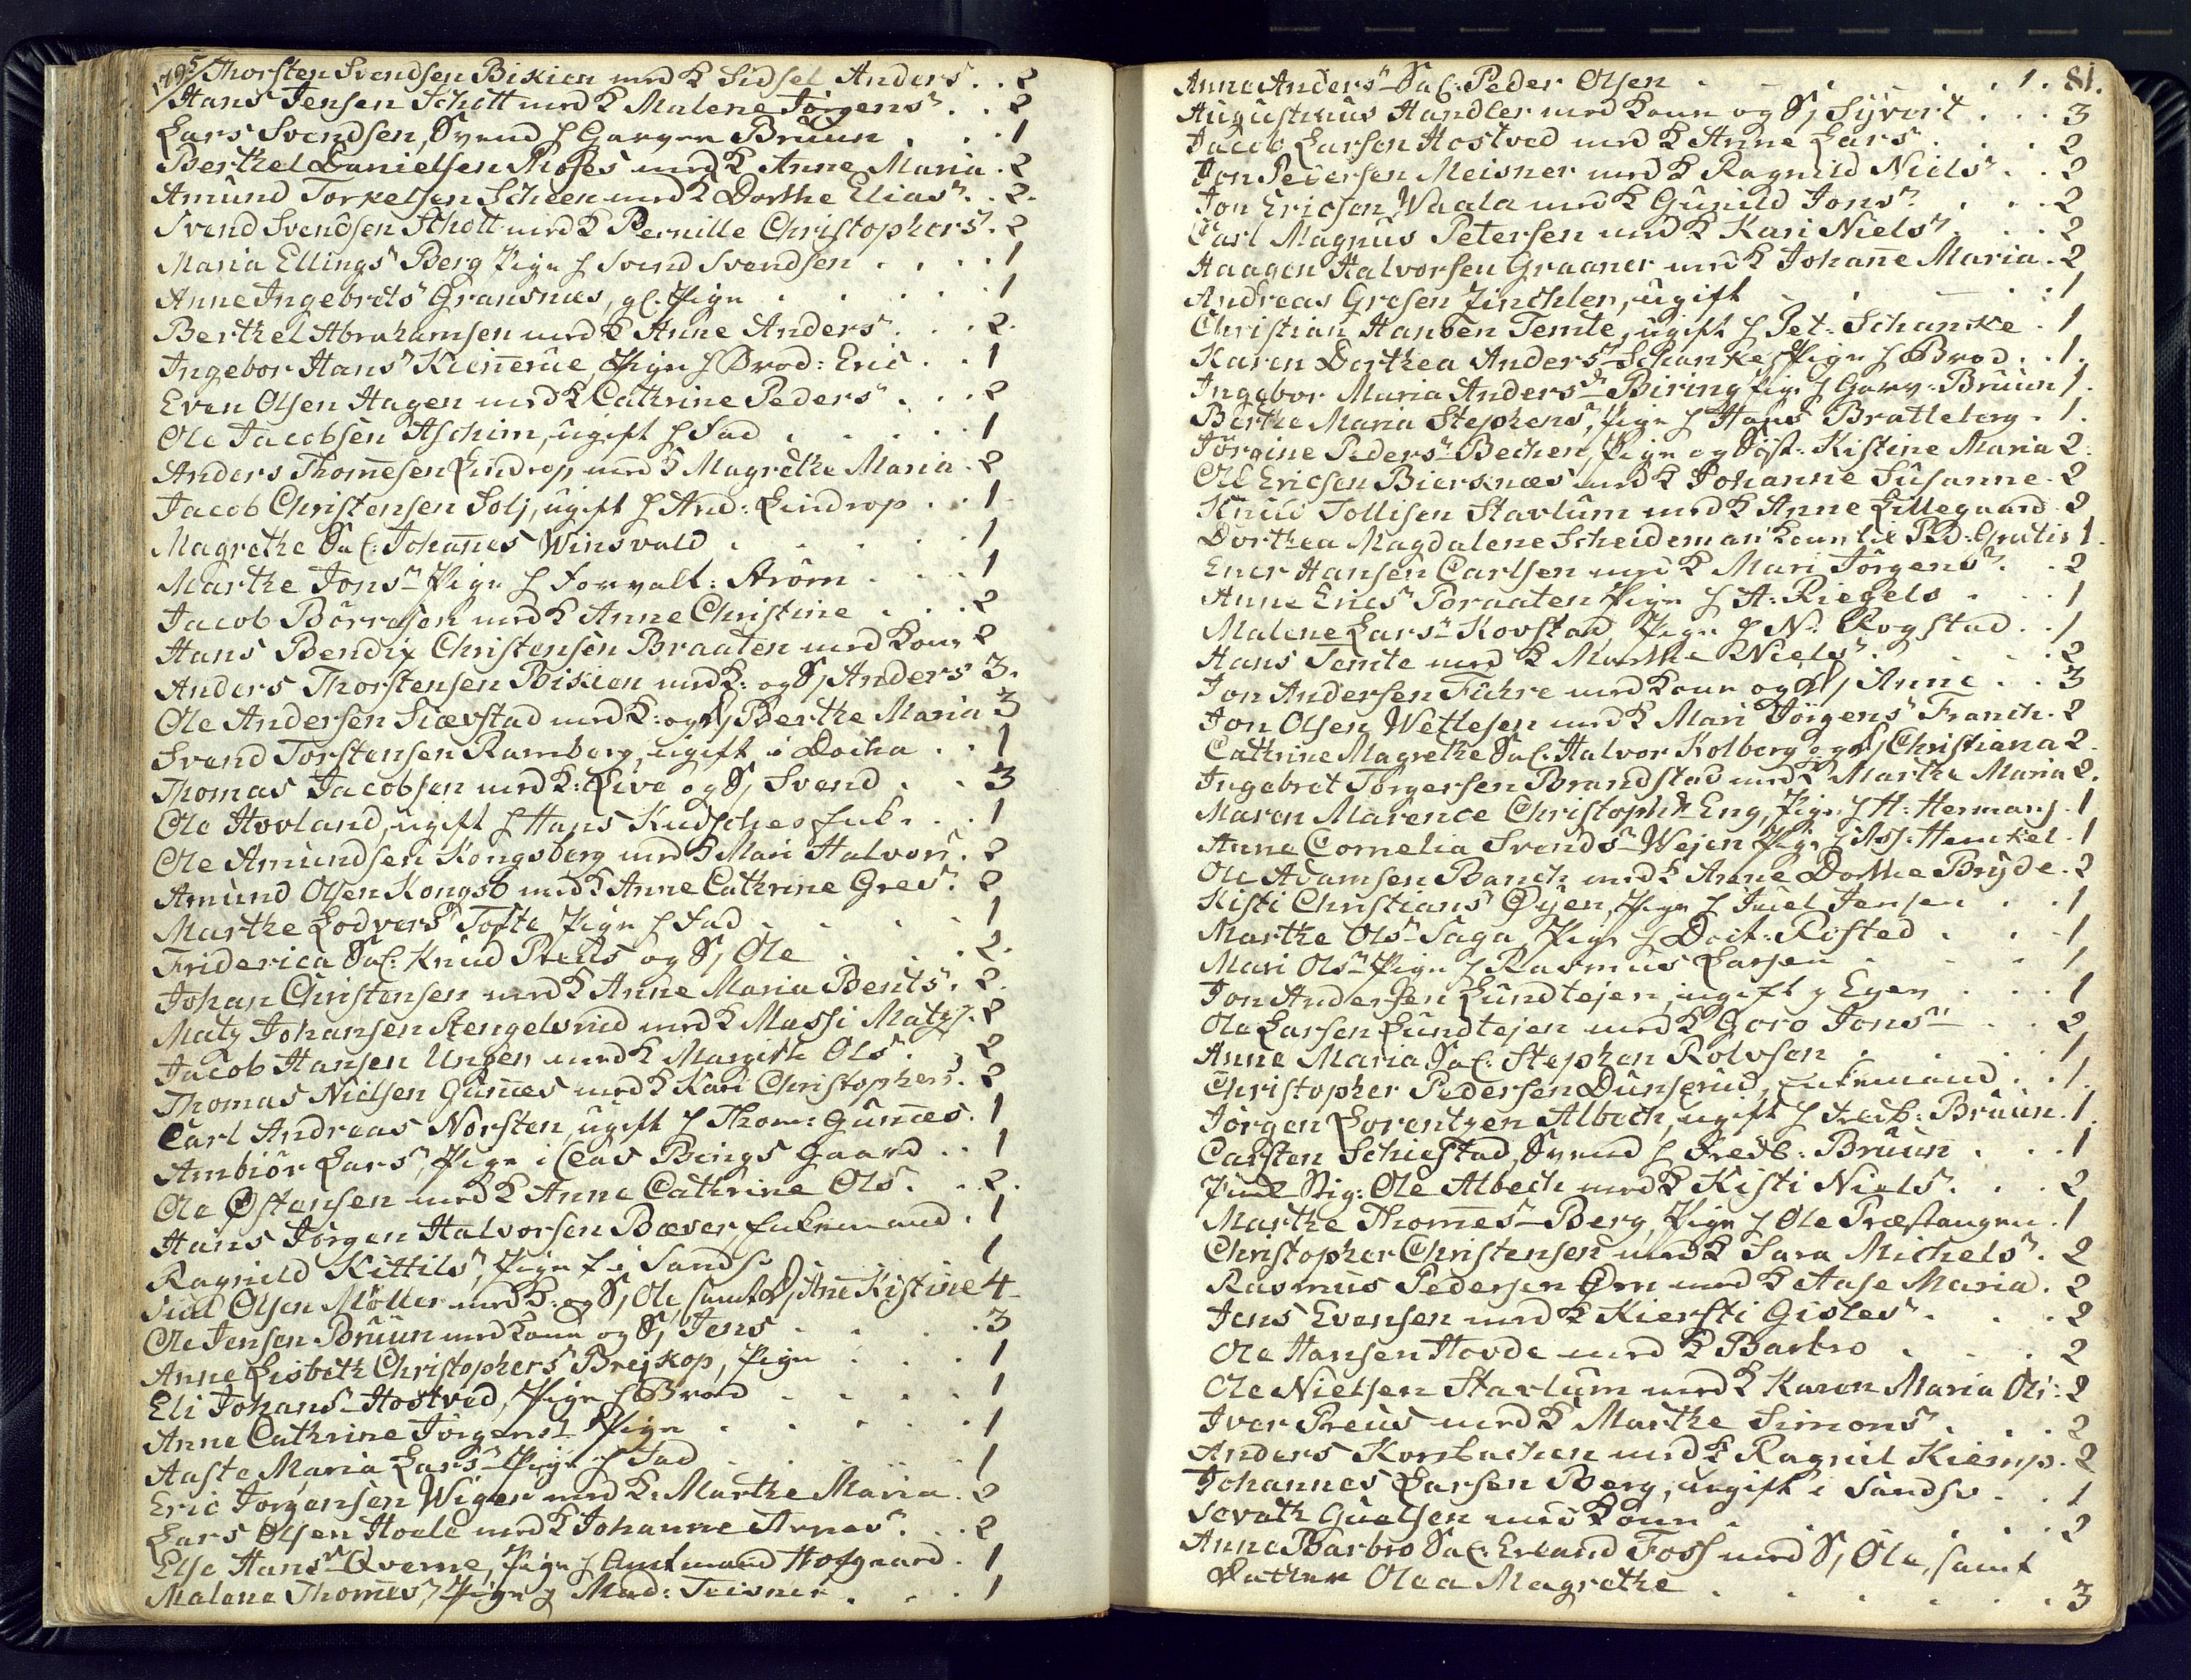 1795/ Thorsten Svendsen Bikien med K Sidsel Anders . . 2
Hans Jensen Schott med K Malene Jørgens . . 2
Lars Svendsen, Svend h Garver Bruun . . 1
Berthel Danielsen Moses med K Anne Maria . 2
Amund Torkelsen Scheen med K Dorthe Elias . . 2.
Svend Svendsen Schott med K Pernille Christophers . 2
Maria Ellings Berg Pige h Svend Svendsen . . . . 1
Anne Ingebrets Gransnæs, gl. Pige . . . . 1
Berthel Abrahamsen med K Anne Anders . . . 2.
Ingebor Hans Kinnerue, Pige h Brod: Eric . . 1
Even Olsen Hagen med K Cathrine Peders . . . 2
Ole Jacobsen Aschim, ugift h Fad . . . . 1
Anders Thomesen Lindrop, med K Magrethe Maria . 2
Jacob Christensen Solj, ugift h And: Lindrop . . 1
Magrethe Sal: Johanes Winsvald . . . . 1
Marthe Jons Pige h Forvalt: Strøm . . . 1
Jacob Børresen med K Anne Christine . . . 2
Hans Bendix Christensen Braaten med Kone 2
Anders Thorstensen Bikien med K: og S, Anders 3.
Ole Andersen Siævstad med K: og D, Berthe Maria 3
Svend Torstensen Ramberg, ugift i Docka . . 1
Thomas Jacobsen med K: Live og S, Svend . . 3
Ole Hovland, ugift h Hans Kudsches Enke . . 1
Ole Amundsen Kongsberg med K Mari Halvors . 2
Amund Olsen Kongsb med K Anne Cathrine Gres . 2
Marthe Lodvers Tofte Pige h Fad . . . . 1
Friderica Sal: Knud Preus og S, Ole . . . 2.
Johan Christensen med K Anne Maria Bents . 2.
Matz Johansen Stengelsrud med K Massi Matz . 2
Jacob Hansen Unger med K Margith Ols . 2
Thomas Nielsen Gunæs med K Kari Christophers . 2
Carl Andreas Norsten, ugift h Thom: Gunæs . 1
Ambiør Lars, Pige i Clas Bings Gaard . . 1
Ole Østensen med K Anne Cathrine Ols . . 2.
Hans Jørgen Halvorsen Bæver, Enkemand . 1
Ragnild Kittils, Pige h i Sands: 1
Juel Olsen Møller med K: og S, Ole samt D, Ane Kistine 4
Ole Jensen Bruun med Kone og S, Jens . . . 3
Anne Lisbeth Christophers Brejkop, Pige . . . 1
Eli Johans Hostved, Pige h Brod . . . . 1
Anne Cathrine Jørgens Pige . . . . 1
Aaste Maria Lars Pige h Fad . . . . 1
Eric Jørgensen Wiger med K: Marthe Maria . 2
Lars Olsen Hoele med K Johanne Arnes . . . 2
Else Hans Qverne, Pige h Amtmand Hofgaard . 1
Malene Thomes, Pige h Mad: Teisner . . . 1
Anne Anders Sal: Peder Olsen . . . . 1. 81.
Augustinus Handler med Kone og S, Syvert . . . 3
Jacob Larsen Hostved med K Anne Lars . . . 2
Jon Pedersen Meisner med K Ragnild Niels . . 2
Jon Ericsen Waala med K Gunild Jons . . . 2
Carl Magnus Petersen med K Kari Niels . . . 2
Haagen Halvorsen Graaner med K Johane Maria . 2
Andreas Gresen Zinchler, ugift . . . 1
Christian Hansen Temte, ugift h Pet: Schancke . 1
Karen Dorthea Anders Schanke, Pige h Brod . . 1.
Ingebor Maria Anders Biring Pige h Garv: Bruun 1.
Berthe Maria Stephens, Pige h Hans Bratteberg . 1.
Jørgine Peders Bechen, Pige og Søst: Kistine Maria 2.
Ole Ericsen Biersknæs med K Johanne Susanne . 2
Knud Tollisen Stavlum med K Anne Lillegaard 2
Dorthea Magdalene Scheideman 1.
Ener Hansen Carlsen med K Mari Jørgens . . 2
Anne Erics Poraaten Pige h A: Riegels . . . 1
Malene Lars Kovstad, Pige h N: Rogstad . . 1
Hans Temte med K Marthe Niels . . . . 2
Jon Andersen Fuhre med Kone og D, Anne . . 3
Jon Olsen Wettesen med K Mari Jørgens Franch . 2
Cathrine Magrethe Sal: Halvor Kolberg og D, Christiana 2.
Ingebret Torgersen Brandstad med K Marthe Maria 2.
Maren Marence Christoph Eng, Pige h H: Hermans . 1
Anne Cornelia Svends Wejen Pige h Ass: Henckel . 1
Ole Adamsen Banch med K Anne Dorthe Bryde . 2
Kisti Christians Øyen, Pige h Juel Jensen . . 1
Marthe Ols Saga, Pige h Doct: Risted . . 1
Mari Ols Pige h Rasmus Larsen . . . 1
Jon Andersen Lundtejen, ugift h Eger . . . 1
Ole Larsen Lundtejen med K Goro Jons . . 2
Anne Maria Sal: Stephen Rolvsen . . . 1
Christopher Pedersen Dunserud, Enkemand . . 1.
Jørgen Lorentzen Albech, ugift h Fredk: Bruun . 1.
Carsten Schiestad, Svend h Fredk: Bruun . . . 1
Sig: Ole Albech med K Kisti Niels . . . 2
Marthe Thomes Berg, Pige h Ole Præstangen . 1
Christopher Christensen med K Sara Michels . 2
Rasmus Pedersen Ørn med K Aase Maria . 2
Jens Evensen med K Kiersti Gisles . . . 2
Ole Hansen Hovde med K Barbro . . . . 2
Ole Nielsen Stavlum med K Karen Maria Ols: 2
Iver Preus med K Marthe Simons . . . . 2
Anders Korsbachen med K Ragnil Kiemp . 2
Johannes Larsen Berg, ugift i Sandsv . . 1
Sevath Guelsen med Kone . . . . . 2
Anne Barbro Sal: Erland Foss med S, Ole, samt
Datter Olea Magrethe . . . . . . 3